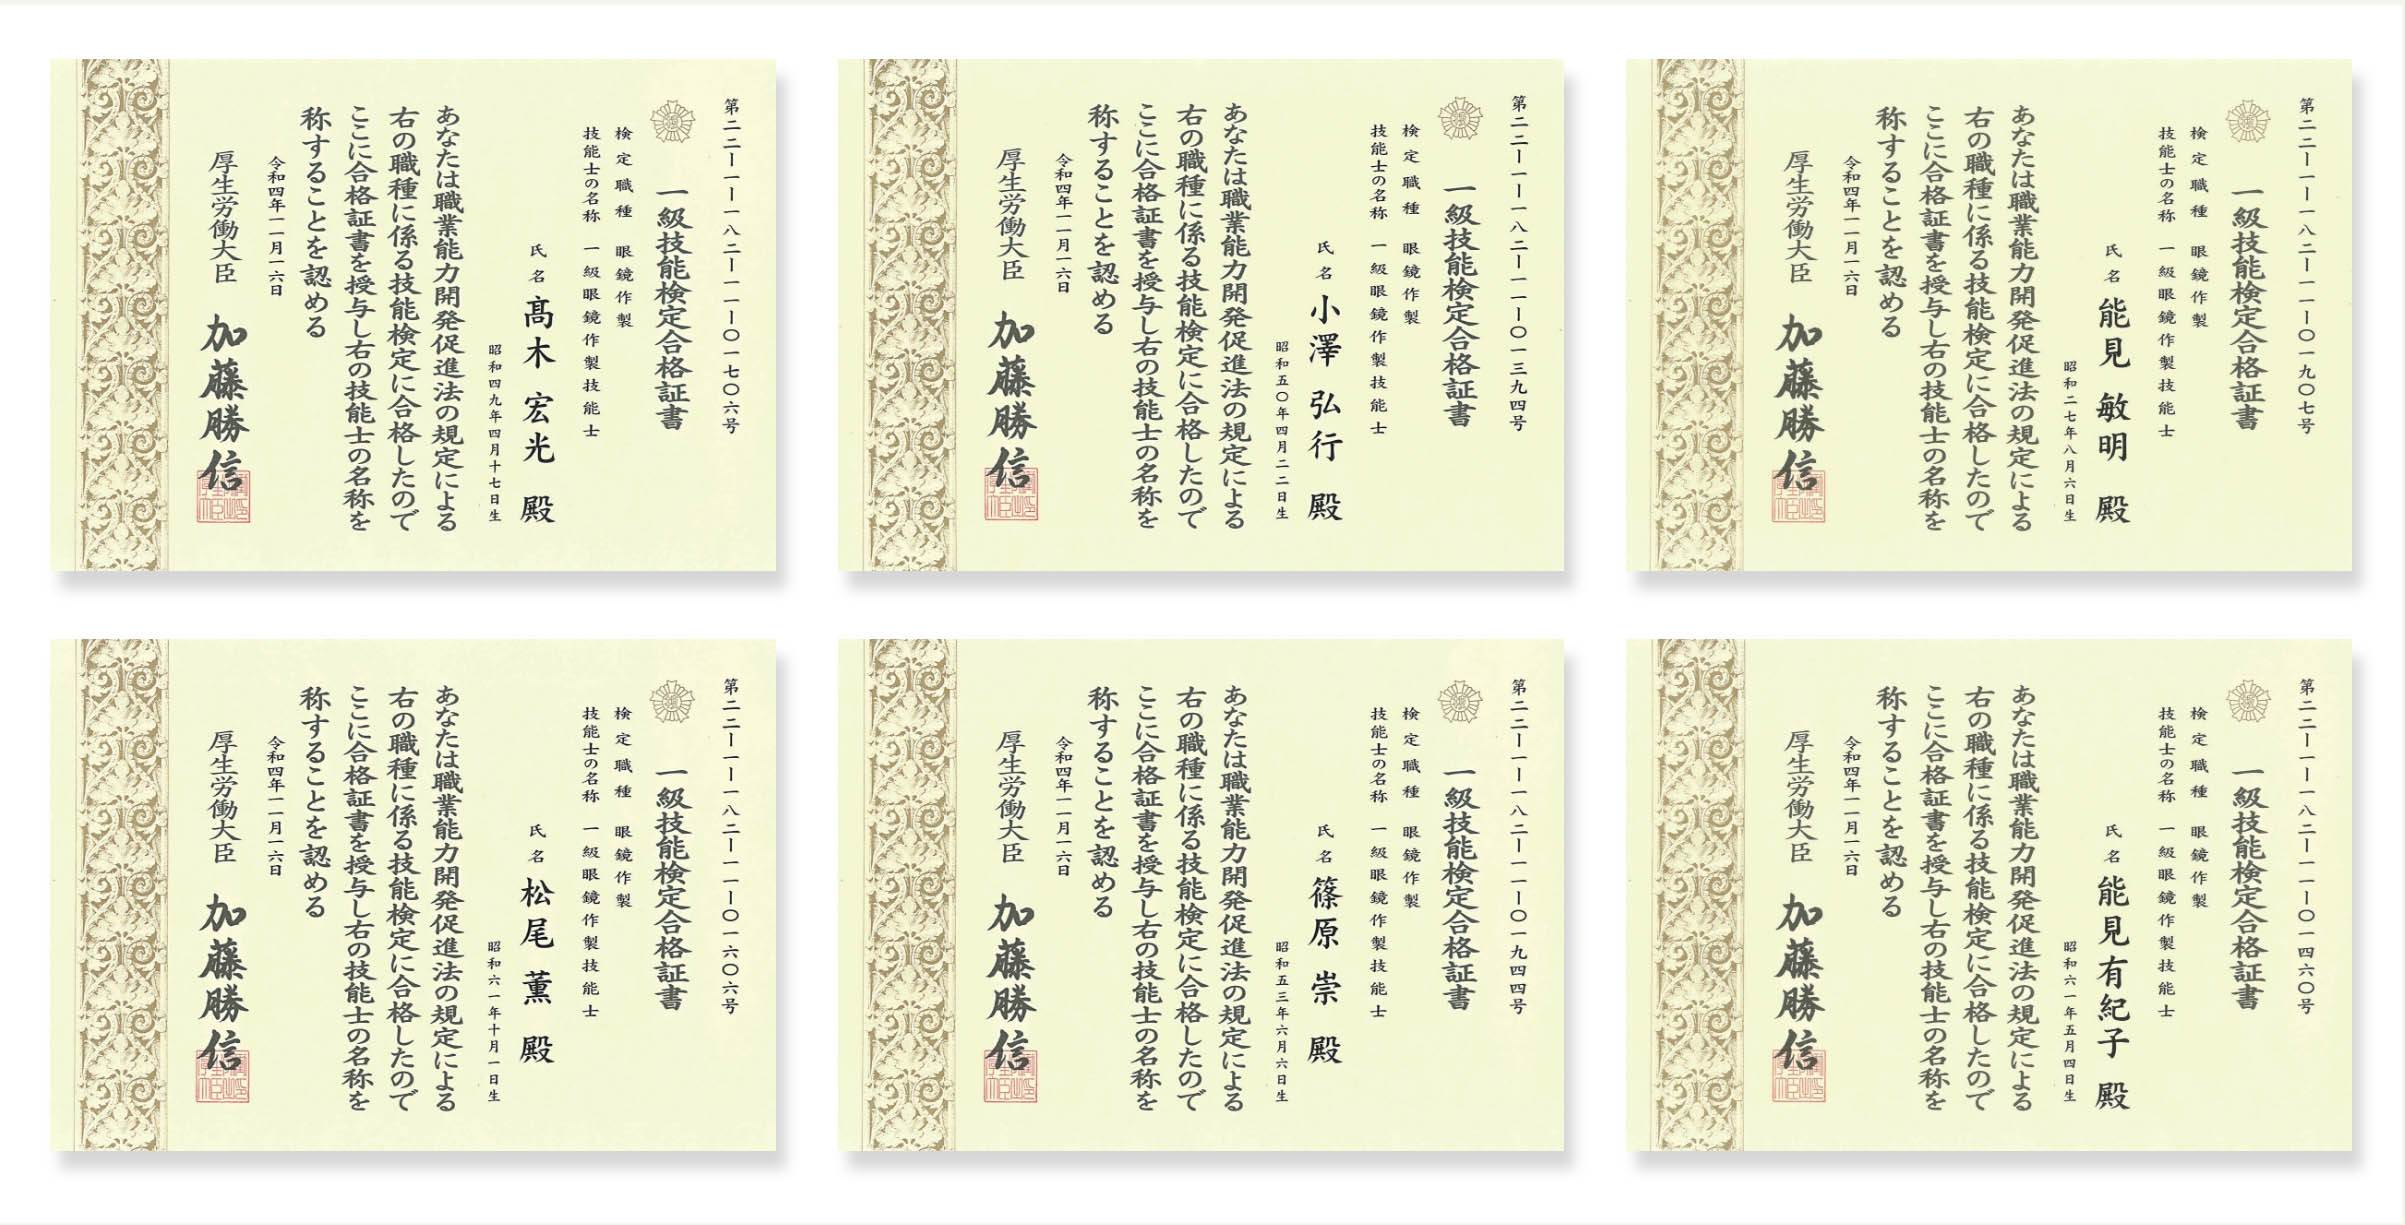 第二二ー一ー一八二ー一一ー〇一七〇六号
一級技能検定合格証書
検定職種 眼鏡作製
技能士の名称 一級眼鏡作製技能士
氏名 髙木 宏光 殿
昭和四九年四月十七日生
あなたは職業能力開発促進法の規定による
右の職種に係る技能検定に合格したので
ここに合格証書を授与し右の技能士の名称を
称することを認める
令和四年一一月一六日
厚生労働大臣 加藤勝信
第二二ー一ー一八二ー一一ー〇一三九四号
一級技能検定合格証書
検定職種 眼鏡作製
技能士の名称 一級眼鏡作製技能士
氏名 小澤 弘行 殿
昭和五〇年四月二二日生
あなたは職業能力開発促進法の規定による
右の職種に係る技能検定に合格したので
ここに合格証書を授与し右の技能士の名称を
称することを認める
令和四年一一月一六日
厚生労働大臣 加藤勝信
第二二ー一ー一八二ー一一ー〇一九〇七号
一級技能検定合格証書
検定職種 眼鏡作製
技能士の名称 一級眼鏡作製技能士
氏名 能見 敏明 殿
昭和二七年八月六日生
あなたは職業能力開発促進法の規定による
右の職種に係る技能検定に合格したので
ここに合格証書を授与し右の技能士の名称を
称することを認める
令和四年一一月一六日
厚生労働大臣 加藤勝信
第二二ー一ー一八二ー一一ー〇一六〇六号
一級技能検定合格証書
検定職種 眼鏡作製
技能士の名称 一級眼鏡作製技能士
氏名 松尾 薫 殿
昭和六一年十月一日生
あなたは職業能力開発促進法の規定による
右の職種に係る技能検定に合格したので
ここに合格証書を授与し右の技能士の名称を
称することを認める
令和四年一一月一六日
厚生労働大臣 加藤勝信
第二二ー一ー一八二ー一一ー〇一九四四号
一級技能検定合格証書
検定職種 眼鏡作製
技能士の名称 一級眼鏡作製技能士
氏名 篠原 崇 殿
昭和五三年六月六日生
あなたは職業能力開発促進法の規定による
右の職種に係る技能検定に合格したので
ここに合格証書を授与し右の技能士の名称を
称することを認める
令和四年一一月一六日
厚生労働大臣 加藤勝信
第二二ー一ー一八二ー一一ー〇一四六〇号
一級技能検定合格証書
検定職種 眼鏡作製
技能士の名称 一級眼鏡作製技能士
氏名 能見有紀子 殿
昭和六一年五月四日生
あなたは職業能力開発促進法の規定による
右の職種に係る技能検定に合格したので
ここに合格証書を授与し右の技能士の名称を
称することを認める
令和四年一一月一六日
厚生労働大臣 加藤勝信